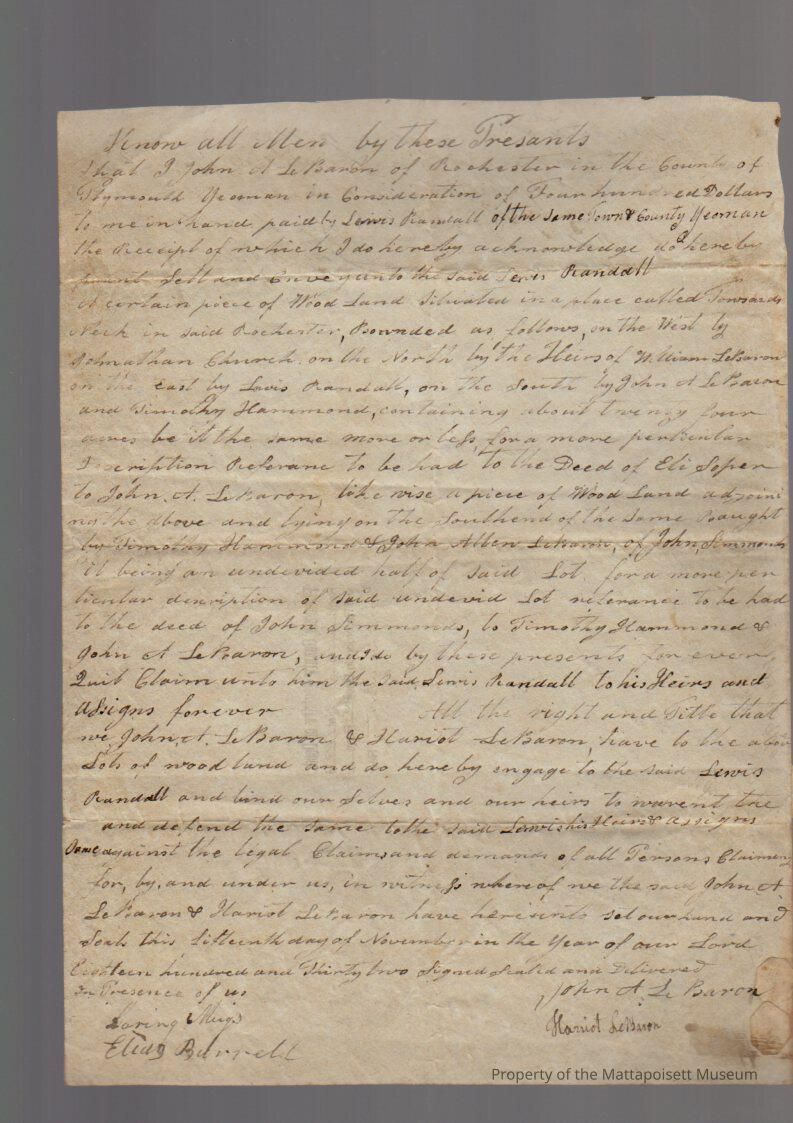 Know all Men by these Presants
that I John A LeBaron of Rochester in the County of
Plymouth Yeoman in Consideration of Four hundred Dollars
to me in hand paid by Lewis Randall of the same Town & County Yeoman
the Receipt of which I do hereby acknowledge do hereby
Sell and Convey unto the said Lewis Randall
A certain piece of Wood Land Situated in a place called Towsards
Neck in said Rochester, Bownded as follows, on the West by
Johnathan Church on the North by the Heirs of William LeBaron
on the east by Lewis Randall, on the South by John A LeBaron
and Timothy Hammond, containing about twenty four
acres be it the same more or less, for a more perticular
Discription Referane to be had to the Deed of Eli Soper
to John. A. LeBaron, like wise a piece of Wood Land adjoini
ng the above and lying on the Southend of the same Baught
by Timothy Hammond & John Allen LeBaron, of John, Simmonds
it being an undevided half of said Lot. for a more per
ticular description of said undevid Lot referance to be had
to the deed of John Simmonds, to Timothy Hammond &
John A LeBaron, and I do by these presents for ever
Quit Claim unto him the said Lewis Randall to his Heirs and
assigns forever All the right and Title that
we John. A. LeBaron & Hariot LeBaron, have to the above
Lots of wood land and do hereby engage to the said Lewis
Randall and bind our Selves and our heirs to warent the
and defend the same to the said Lewis his Heirs & assigns
Same against the legal Claims and demands of all Persons Claimeng
for, by, and under us, in witness whereof we the said John A
LeBaron & Hariot LeBaron have hereunto set our hand and
Seals this fifteenth day of November in the Year of our Lord
Eighteen hundred and Thirty two Signed Sealed and Delivered
In Presence of us John A LeBaron
Loring Meigs Harriot LeBaron
Elias Burrell
Property of the Mattapoisett Museum